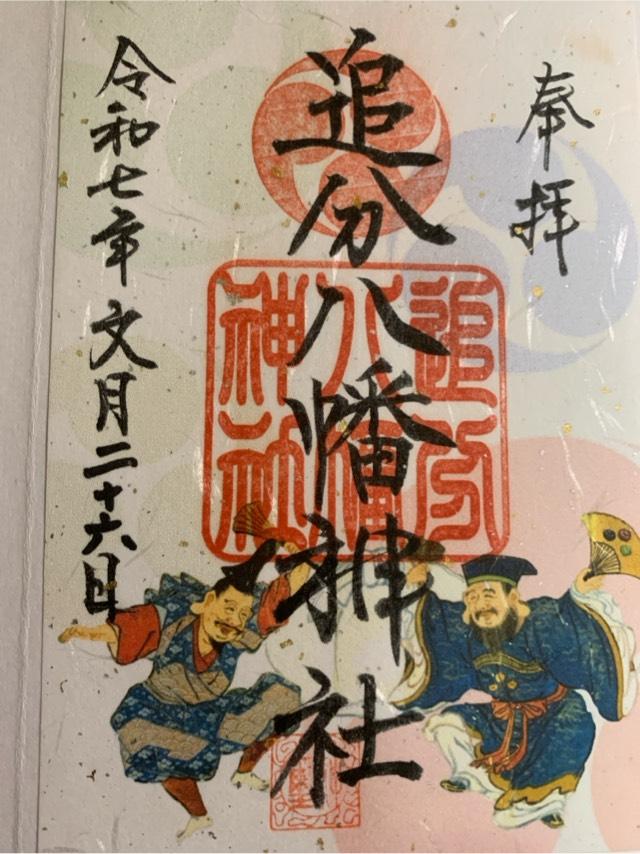 奉拝
追分八幡神社
追分八幡神社
令和七年文月二十六日